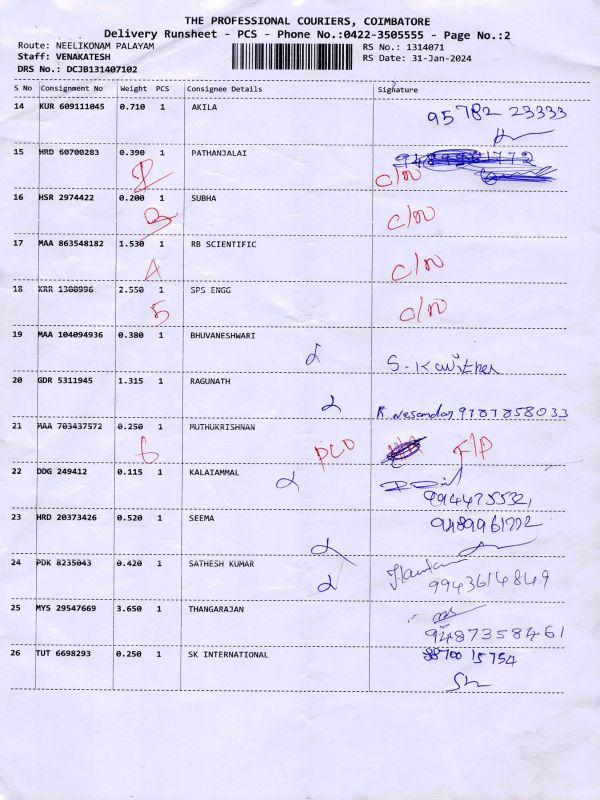 THE PROFESSIONAL COURIERS, COIMBATORE
Delivery Runsheet - PCS - Phone No.:0422-3505555 - Page No.:2
Route: NEELIKONAM PALAYAM RS No.: 1314071
Staff: VENAKATESH RS Date: 31-Jan-2024
DRS No.: DCJB131407102
S No Consignment No Weight PCS Consignee Details Signature
14 KUR 609111045 0.710 1 AKILA 95782 23333
15 HRD 60700283 0.390 1 PATHANJALAI
C/N
16 HSR 2974422 0.200 1 SUBHA C/N
3
17 MAA 863548182 1.530 1 RB SCIENTIFIC C/N
4
18 KRR 1300996 2.550 1 SPS ENGG C/N
5
19 MAA 104094936 0.380 1 BHUVANESHWARI
S.
20 GDR 5311945 1.315 1 RAGUNATH
9787858033
21 MAA 703437572 0.250 1 MUTHUKRISHNAN
6 F/P
22 DDG 249412 0.115 1 KALAIAMMAL
9944755321
23 HRD 20373426 0.520 1 SEEMA 9489961772
24 PDK 8235043 0.420 1 SATHESH KUMAR
9943614849
25 MYS 29547669 3.650 1 THANGARAJAN
9487358461
26 TUT 6698293 0.250 1 SK INTERNATIONAL 15754